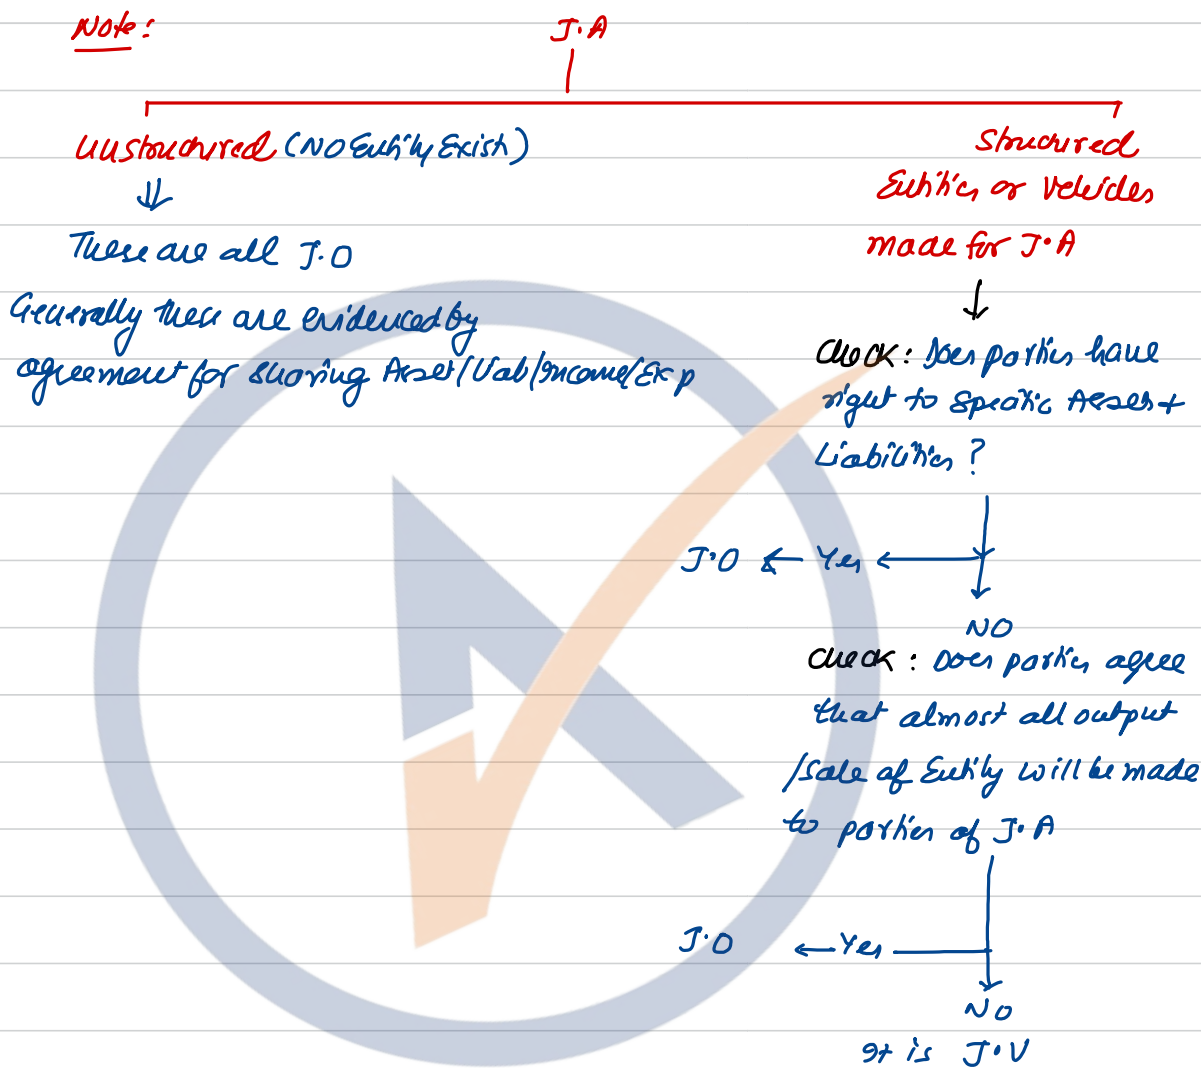 Note:
J.A
Unstructured (No Entity Exist)
These are all J.O
Generally these are evidenced by
agreement for sharing Asset/Liab/Income/Exp
Structured
Entities or Vehicles
made for J.A
Check: Does parties have
right to Specific Assets +
Liabilities ?
J.O ← Yes ←
NO
Check: Does parties agree
that almost all output
/Sale of Entity will be made
to parties of J.A
J.O ← Yes
NO
It is J.V